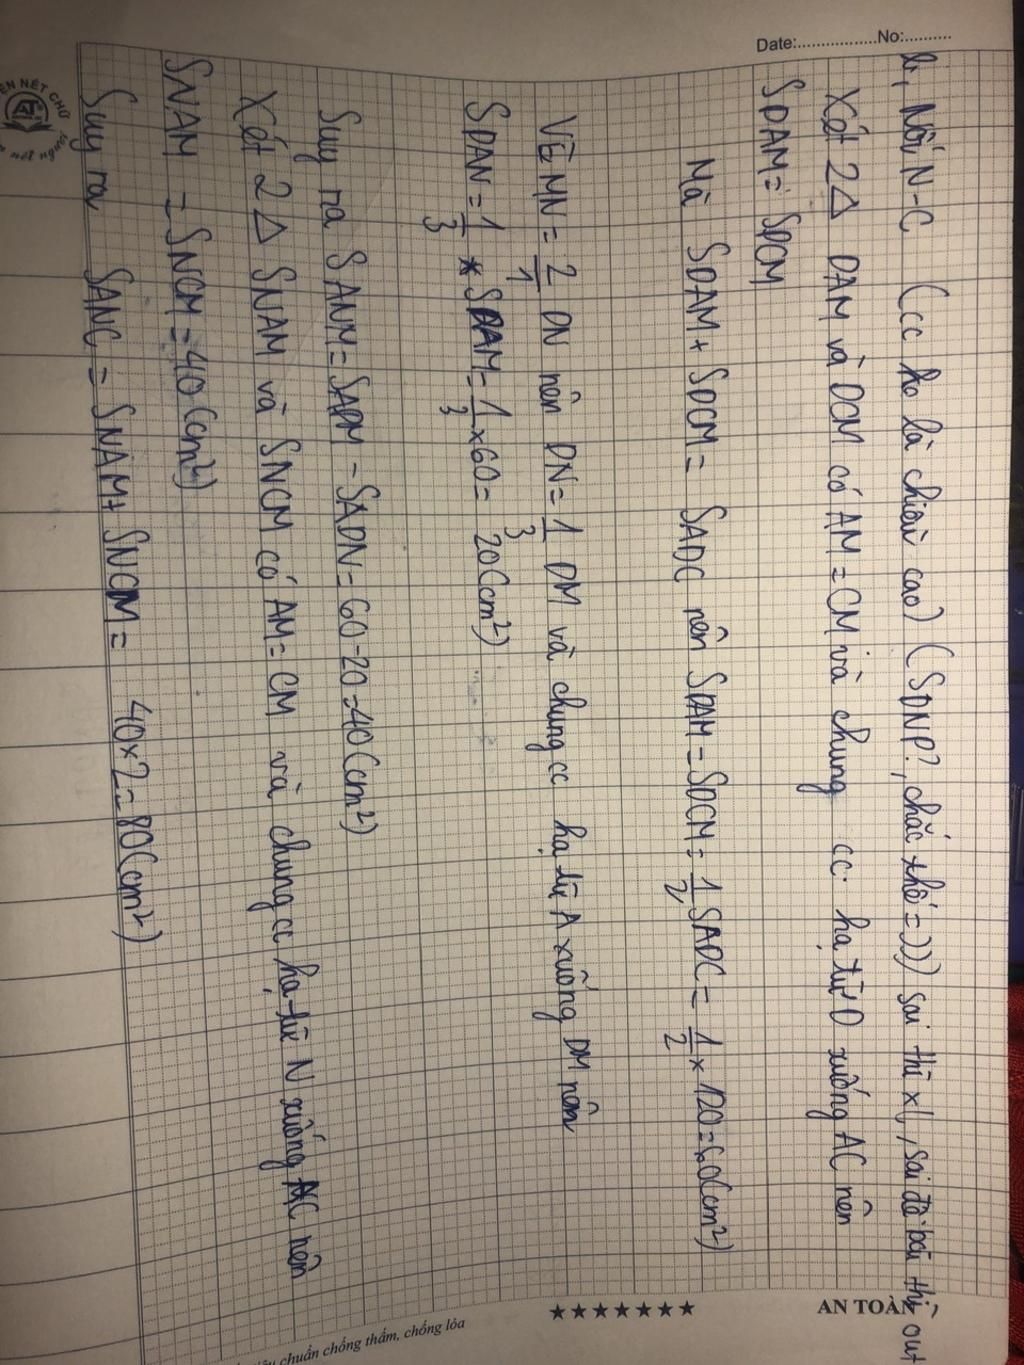 Date:.................No:..........
b, Nối N-C (cc ho là chiều cao) (SDNP?, chắc thế =))) sai thì xl, sai đề bài thì out
Xét 2△ DAM và DCM có AM = CM và chung cc hạ từ D xuống AC nên
SDAM = SDCM
Mà SDAM + SDCM = SADC nên SDAM = SDCM = 1/2 SADC = 1/2 × 120 = 60(cm²)
Vì MN = 2/1 DN nên DN = 1/3 DM và chung cc hạ từ A xuống DM nên
SDAN = 1/3 * SDAM = 1/3 × 60 = 20(cm²)
Suy ra SANM = SADM - SADN = 60 - 20 = 40(cm²)
Xét 2△ SNAM và SNCM có AM = CM và chung cc hạ từ N xuống AC nên
SNAM = SNCM = 40(cm²)
Suy ra SANC = SNAM + SNCM = 40 × 2 = 80(cm²)
AN TOÀN
chuẩn chống thấm, chống lóa
NÉT CHỮ
AT
nết người